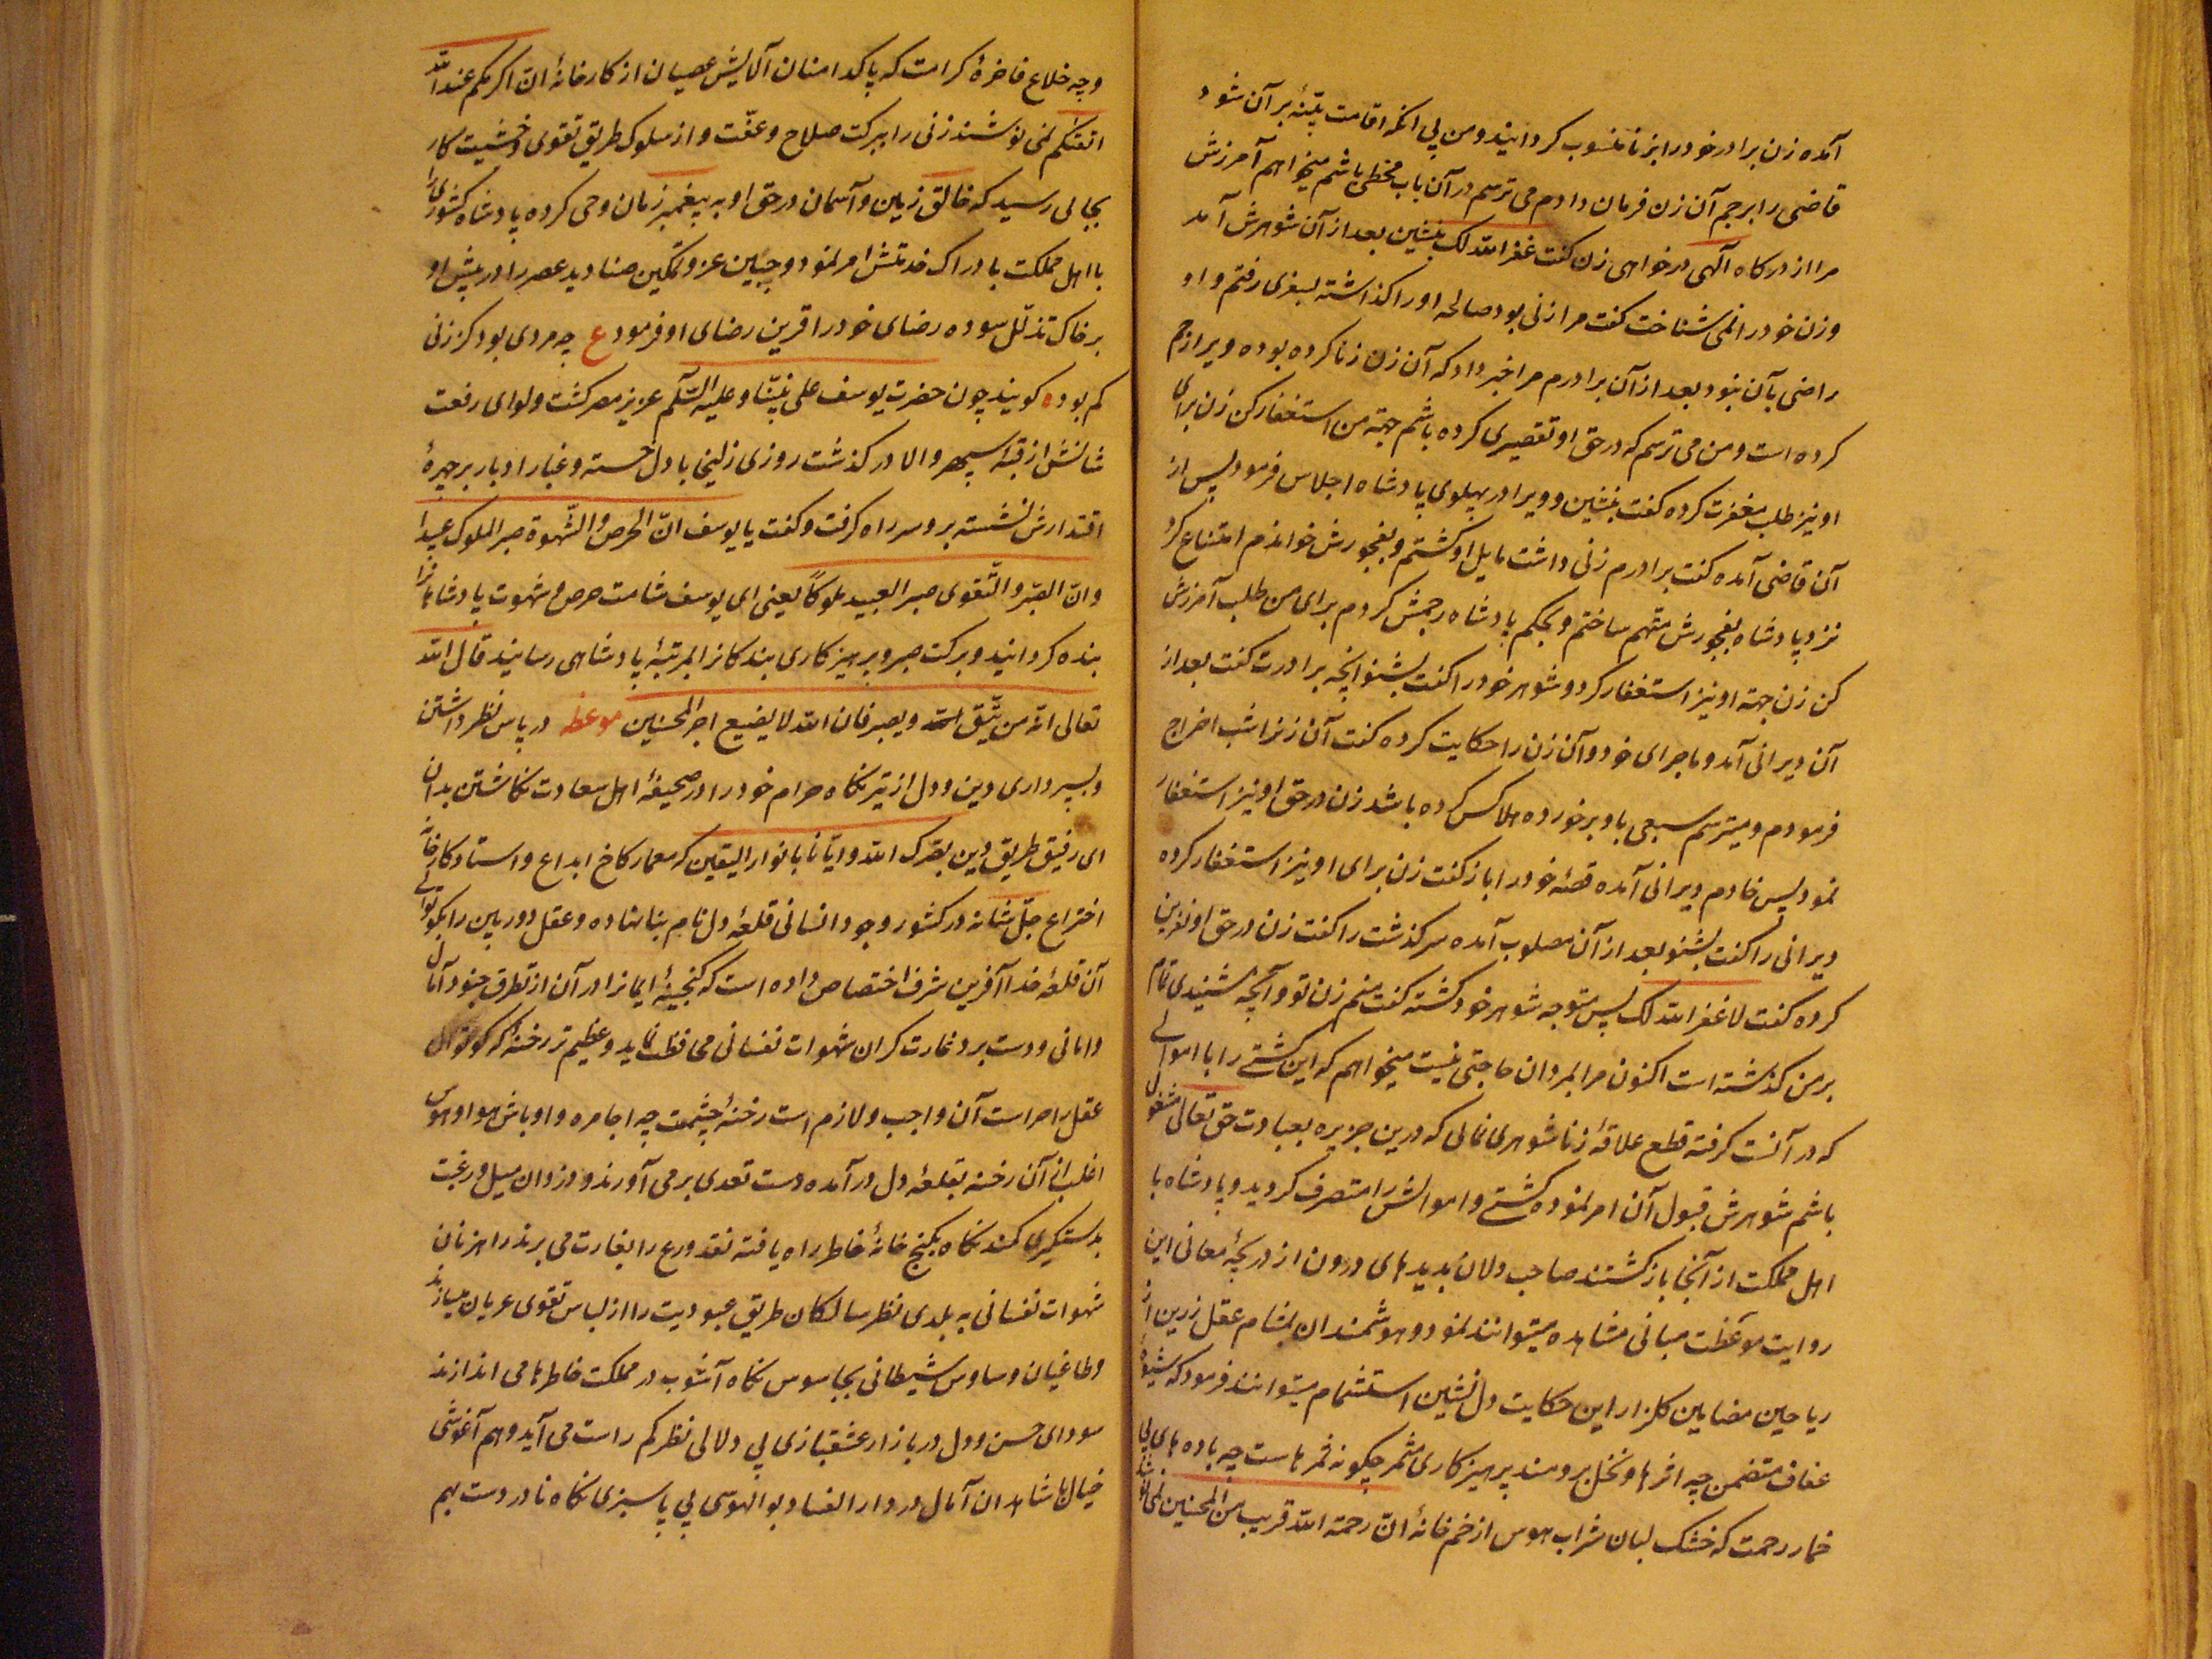 آمده زن برادر خود را بزنا منسوب کردانید و من پی انکه اقامت بیّنهٔ بر آن شود
قاضی را برجم آن زن فرمان دادم می ترسم در آن باب مخطی باشم میخواهم آمرزش
مرا از درکاه آلهی درخواهی زن کفت غفر الله لک بنشین بعد از آن شوهرش آمد
و زن خود را نمی شناخت کفت مرا زنی بود صالحه او را کذاشته بسفری رفتم و او
راضی بآن نبود بعد از آن برادرم مرا خبر داد که آن زن زنا کرده بوده ویرا رجم
کرده است و من می ترسم که در حق او تقصیری کرده باشم جهة من استغفار کن زن برای
او نیز طلب مغفرت کرده کفت بنشین و ویرا در پهلوی پادشاه اجلاس فرمود پس از
آن قاضی آمده کفت برادرم زنی داشت مایل او کشتم و بفجورش خواندم امتناع کرد
نزد پادشاه بفجورش متهم ساختم و بحکم پادشاه رجمش کردم برای من طلب آمرزش
کن زن جهة او نیز استغفار کرد و شوهر خود را کفت بشنو انچه برادرت کفت بعد از
آن دیرانی آمد و ماجرای خود و آن زن را حکایت کرده کفت آن زنرا شب اخراج
فرمودم و میترسم سبعی باو برخورده هلاکس کرده باشد زن در حق او نیز استغفار
نمود پس خادم دیرانی آمده قصّهٔ خود را باز کفت زن برای او نیز استغفار کرده
دیرانی را کفت بشنو بعد از آن مصلوب آمده سرکذشت را کفت زن در حق او نفرین
کرده کفت لا غفر الله لک پس متوجه شوهر خود کشته کفت منم زن تو و آنچه شنیدی تمام
بر من کذشته است اکنون مرا بمردان حاجتی نیست میخواهم که این کشتی را با اموالی
که در آنست کرفته قطع علاقهٔ زناشوهری نمائی که درین جزیره بعبادت حق تعالی مشغول
باشم شوهرش قبول آن امر نموده کشتی و اموالش را متصرف کردید و پادشاه با
اهل مملکت از آنجا بازکشتند صاحب دلان بدیدهای درون از دریچهٔ معانی این
روایت موعظت مبانی مشاهده میتوانند نمود و هوشمندان بمشام عقل زرین از
ریاحین مضامین کلزار این حکایت دل نشین استشمام میتوانند فرمود که شیوهٔ
عفاف متضمن چه اثرها و نخل برومند پرهیزکاری مثمر چکونه ثمرهاست چه بادهای بی
خمار رحمت که خشک لبان شراب هوس از خم خانهٔ انّ رحمة الله قریب من المحسنین نمی نوشند
وجه خلاع فاخرهٔ کرامت که پاکدامنان آلایش عصیان از کارخانهٔ انّ اکرمکم عند الله
اتقیکم نمی پوشند زنی را ببرکت صلاح و عفّت و از سلوک طریق تقوی و خشیت کار
بجائی رسید که خالق زمین و آسمان در حق او به پیغمبر زمان وحی کرده پادشاه کشوری را
با اهل مملکت بادراک خدمتش امر نمود و جبین عز و تمکین صنادید عصر را در پیش او
بر خاک تذلّل سوده رضای خود را قرین رضای او فرمود ع چه مردی بود کز زنی
کم بود کویند چون حضرت یوسف علی نبیّنا و علیه السّلم عزیز مصر کشت و لوای رفعت
شانش از قبّهٔ سپهر والا در کذشت روزی زلیخا با دل خسته و غبار ادبار بر چهرهٔ
اقتدارش نشسته برو سر راه کرفت و کفت یا یوسف انّ الحرص و الشّهوة صیر الملوک عبیدا
و انّ الصّبر و التّقوی صیر العبید ملوکاً یعنی ای یوسف شامت حرص و شهوت پادشاهانرا
بنده کردانید و برکت صبر و پرهیزکاری بندکانرا بمرتبهٔ پادشاهی رسانید قال الله
تعالی انّه من یتّق الله و یصبر فان الله لا یضیع اجر المحسنین موعظه در پاس نظر داشتن
و بسپرداری دین و دل از تیر نکاه حرام خود را در صحیفهٔ اهل سعادت نکاشتن بدان
ای رفیق طریق دین بصرک الله و ایّانا بانوار الیقین که معمار کاخ ابداع و استاد کارخانهٔ
اختراع جلّ شانه در کشور وجود انسانی قلعهٔ دل نام بنا نهاده و عقل دوربین را بکوتوالی
آن قلعهٔ خدا آفرین شرف اختصاص داده است که کنجینهٔ ایمانرا در آن از تطرق جنود آمال
و امانی و دست برد غارت کران شهوات نفسانی محافظت نماید و عظیم تر رخنهٔ که کوتوال
عقل را حراست آن واجب و لازم است رخنهٔ چشمست چه اجامره و اوباش هوا و هوس
اغلب از آن رخنه بقلعهٔ دل در آمده دست تعدی برمی آورند و دزدان میل و رغبت
بدستکیری کمند نکاه بکنج خانهٔ خاطر راه یافته نقد ورع را بغارت می برند راهزنان
شهوات نفسانی به بلدی نظر سالکان طریق عبودیت را از لباس تقوی عریان میسازند
و طاغیان وساوس شیطانی بجاسوس نکاه آشوب در مملکت خاطرها می اندازند
سودای حسن و دل در بازار عشقبازی بی دلالی نظر کم راست می آید و هم آغوشی
خیال با شاهدان آمال در دار الفساد بوالهوسی بی پاسبزی نکاه نادر دست بهم